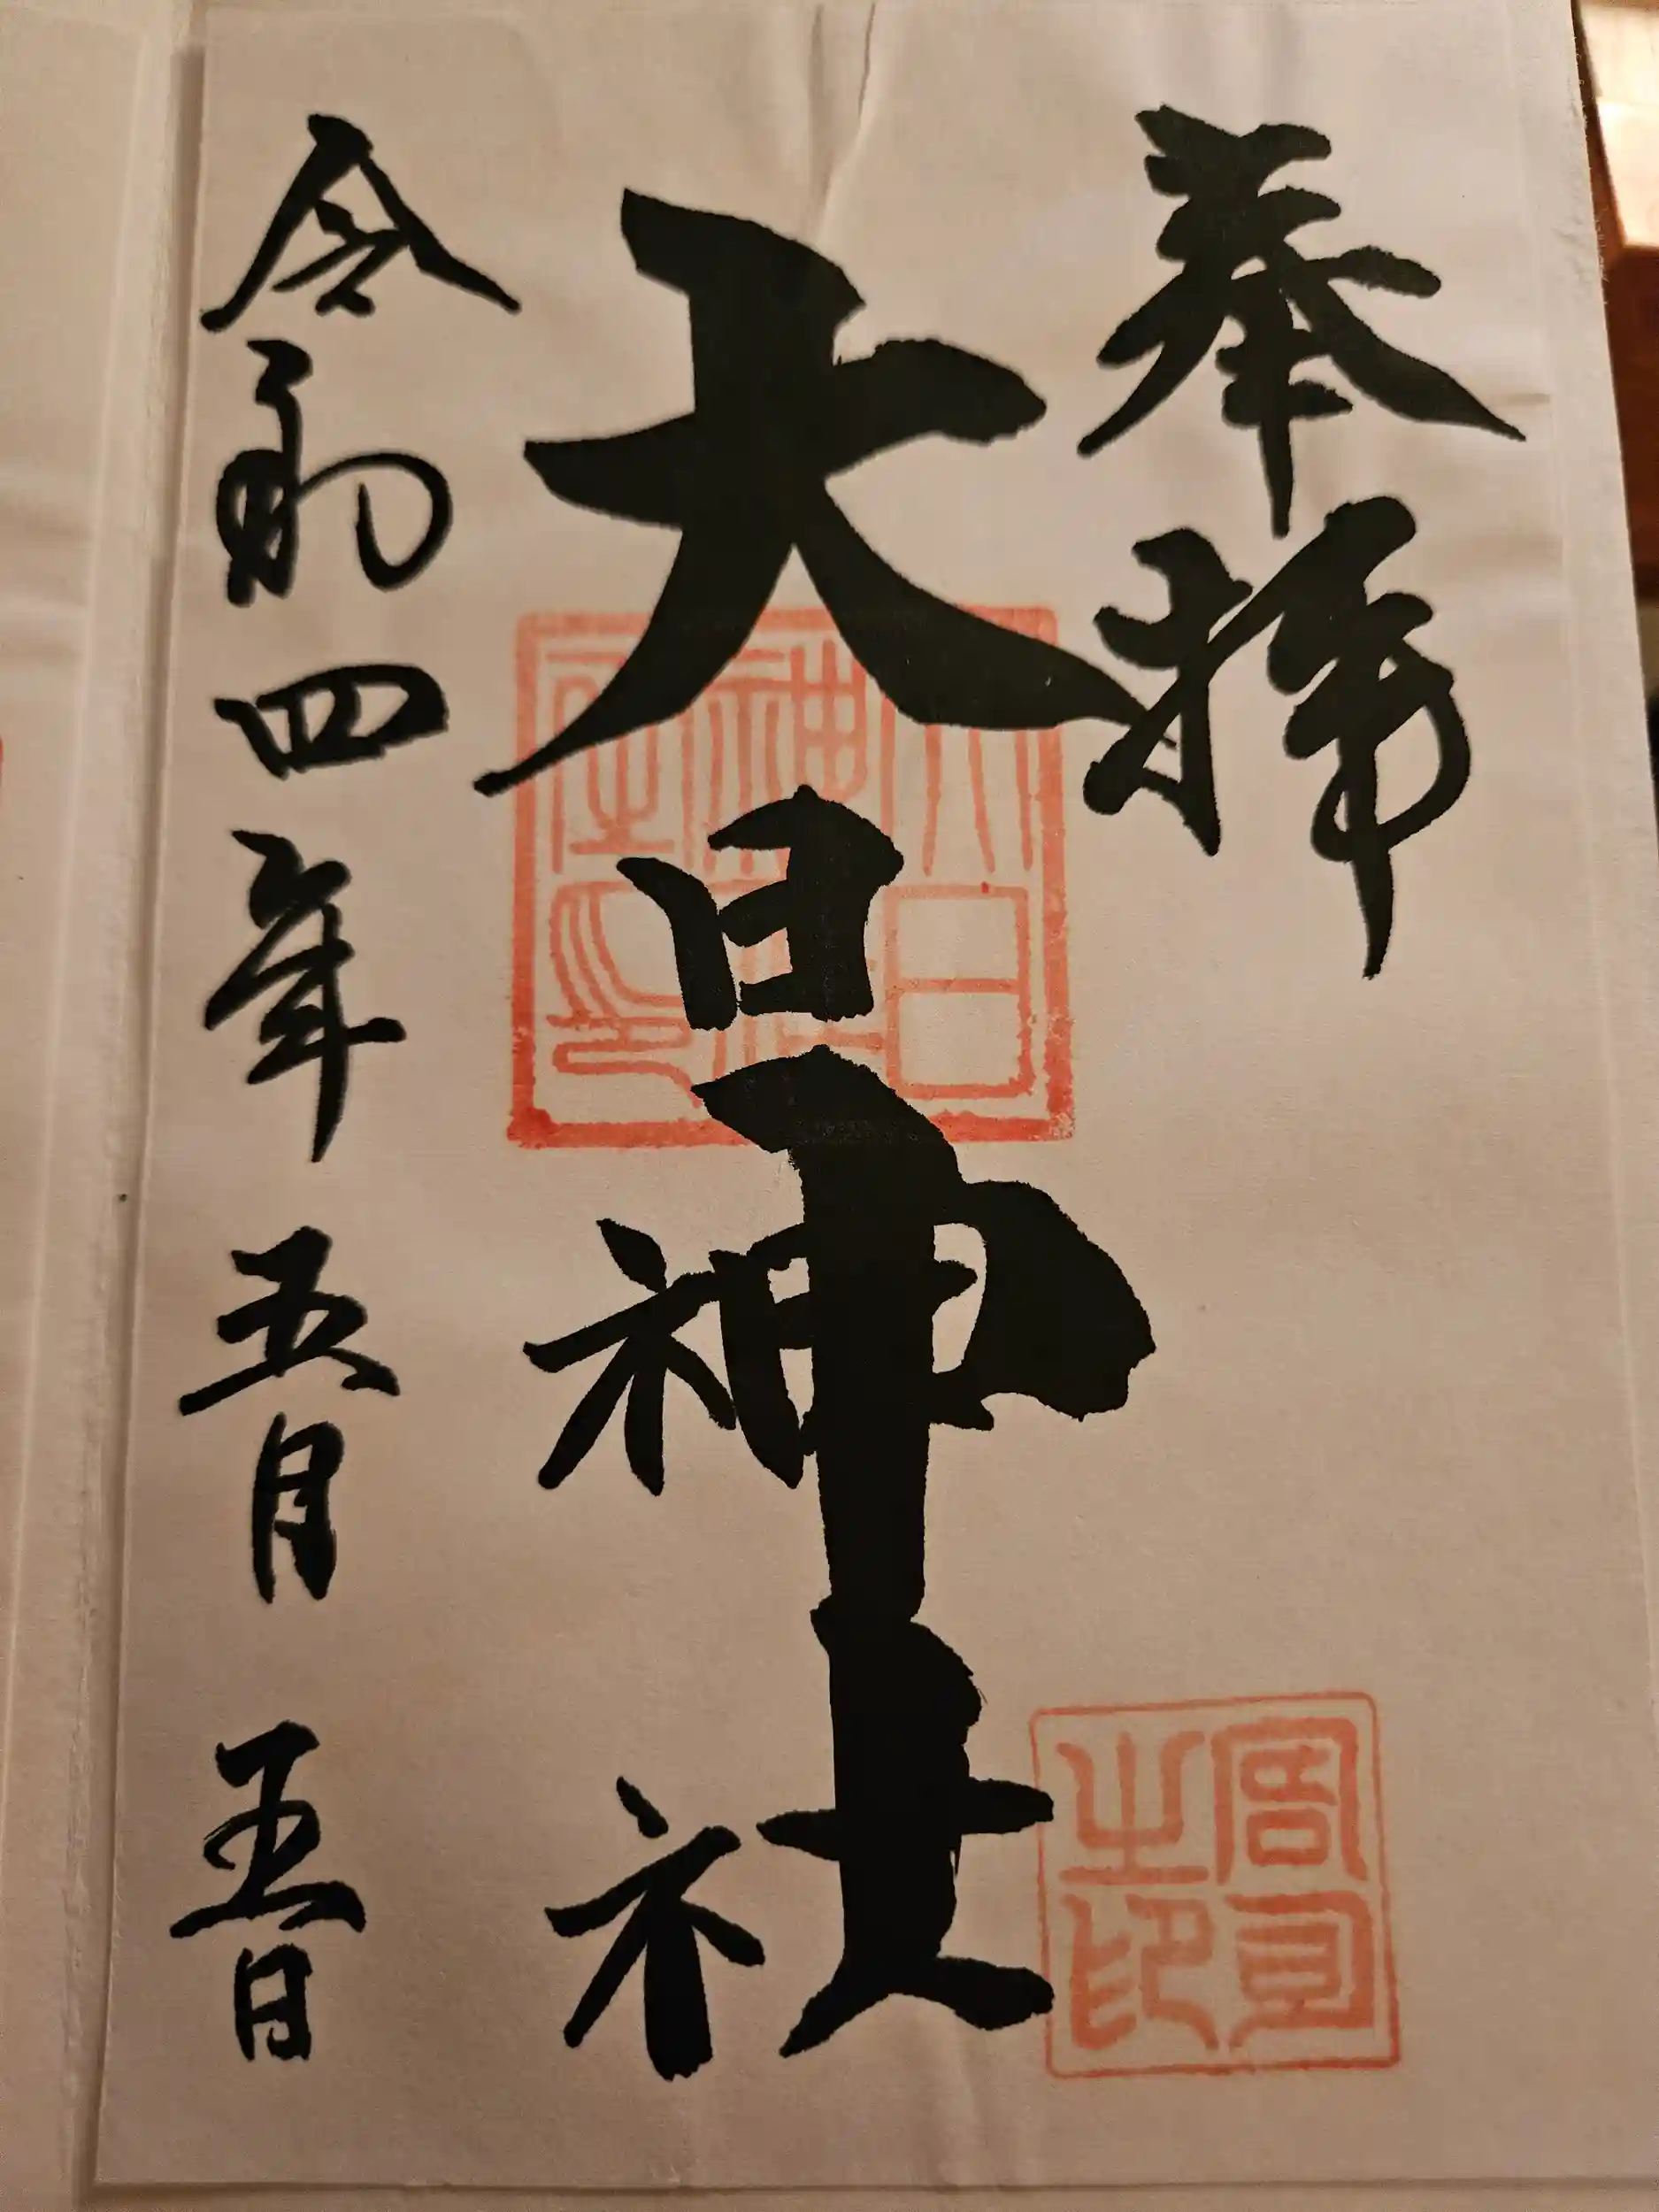 奉拝
大日神社
令和四年五月五日
大日神社之印
宮司之印